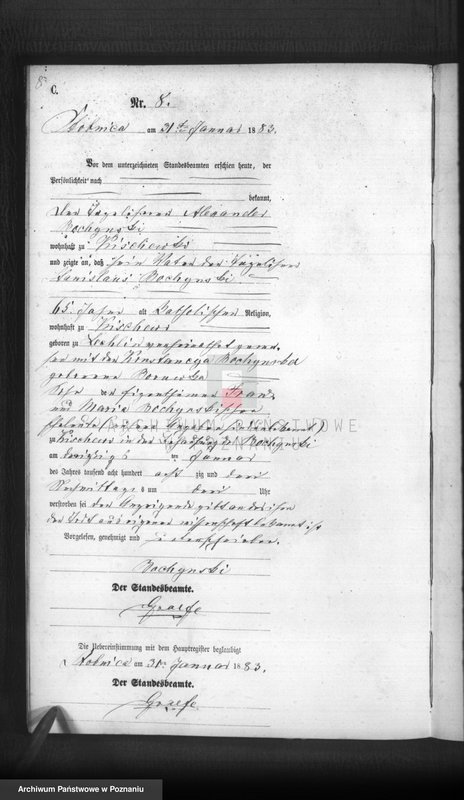 8
C.
Nr. 8.
am 31ten Januar 1883.
Vor dem unterzeichneten Standesbeamten erschien heute, der
Persönlichkeit nach
bekannt,
der Tagelöhner Alexander
Rochynski
wohnhaft zu
und zeigte an, daß sein Vater der Tagelöhner
Rochynski
65 Jahre alt katholischer Religion,
wohnhaft zu
geboren zu verheirathet gewe-
sen mit der Konstancya Rochynska
geborene
Sohn der Eigenthümer Franz
und Maria Rochynskischen
Eheleute
zu in der Behausung des Rochynski
am dreißigsten Januar
des Jahres tausend acht hundert acht zig und drei
Nachmittags um drei Uhr
verstorben sei der Anzeigende gibt an daß ihm
der Tod aus eigener Wissenschaft bekannt ist
Vorgelesen, genehmigt und unterschrieben.
Rochynski
Der Standesbeamte.
Graefe
Die Uebereinstimmung mit dem Hauptregister beglaubigt
am 31. Januar 1883.
Der Standesbeamte.
Graefe
Archiwum Państwowe w Poznaniu